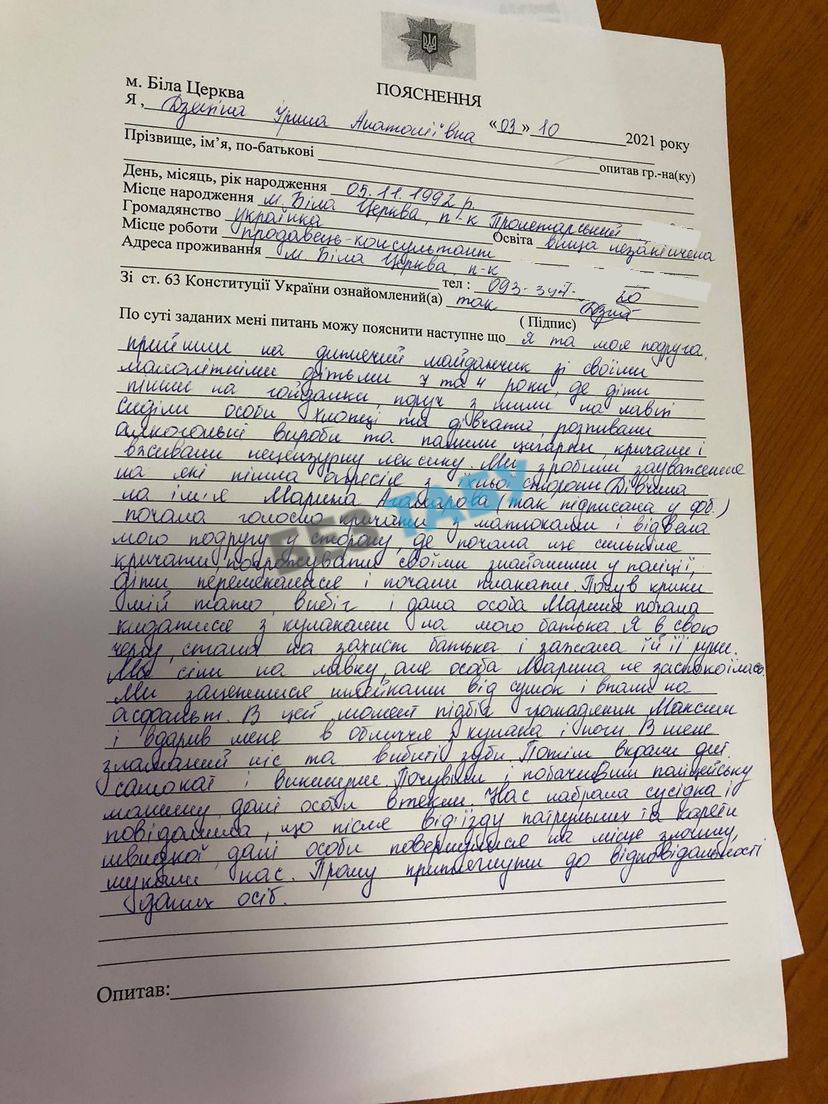 м. Біла Церква
ПОЯСНЕННЯ
«03» 10 2021 року
Я, Ірина Анатоліївна
опитав гр.-на(ку)
Прізвище, ім'я, по-батькові
День, місяць, рік народження 05.11.1992 р.
Місце народження м. Біла Церква, п-к Пролетарський
Громадянство українка Освіта вища незакінчена
Місце роботи продавець-консультант
Адреса проживання м. Біла Церква, п-к
тел : 093-347- 20
Зі ст. 63 Конституції України ознайомлений(а) так
( Підпис)
По суті заданих мені питань можу пояснити наступне що Я та моя подруга,
прийшли на дитячий майданчик зі своїми
малолітніми дітьми 7 та 4 роки, де діти
пішли на гойдалки, поруч з ними на лавці
сиділи особи хлопці та дівчата, розпивали
алкогольні вироби та палили цигарки, кричали і
вживали нецензурну лексику. Ми зробили зауваження
на які пішла агресія з їхньої сторони (Дівчина
на ім'я Марина так підписана у фб.)
почала голосно кричати матюками і відвела
мою подругу у сторону, де почала ще сильніше
кричати погрожувати своїми знайомими у поліції,
діти перелякалися і почали плакати. Почув крики
мій тато, вибіг і дана особа Марина почала
кидатися з кулаками на мого батька. Я в свою
чергу стала на захист батька і зажала їй її руки.
Ми сіли на лавку, але особа Марина не заспокоїлася.
Ми зачепилися шлейками від сумок і впали на
асфальт. В цей момент підбіг громадянин Максим
і вдарив мене в обличчя з кулака і ноги. В мене
зламаний ніс та вибиті зуби. Потім вкрали
самокат і викинули. Почувши і побачивши поліцейську
машину, дані особи втекли. Нас набрала сусідка і
повідомила, що після від'їзду патрульних та карети
швидкої, дані особи повернулися на місце злочину,
шукали нас. Прошу притягнути до відповідальності
даних осіб.
Опитав:
БЕЗ ТАБУ